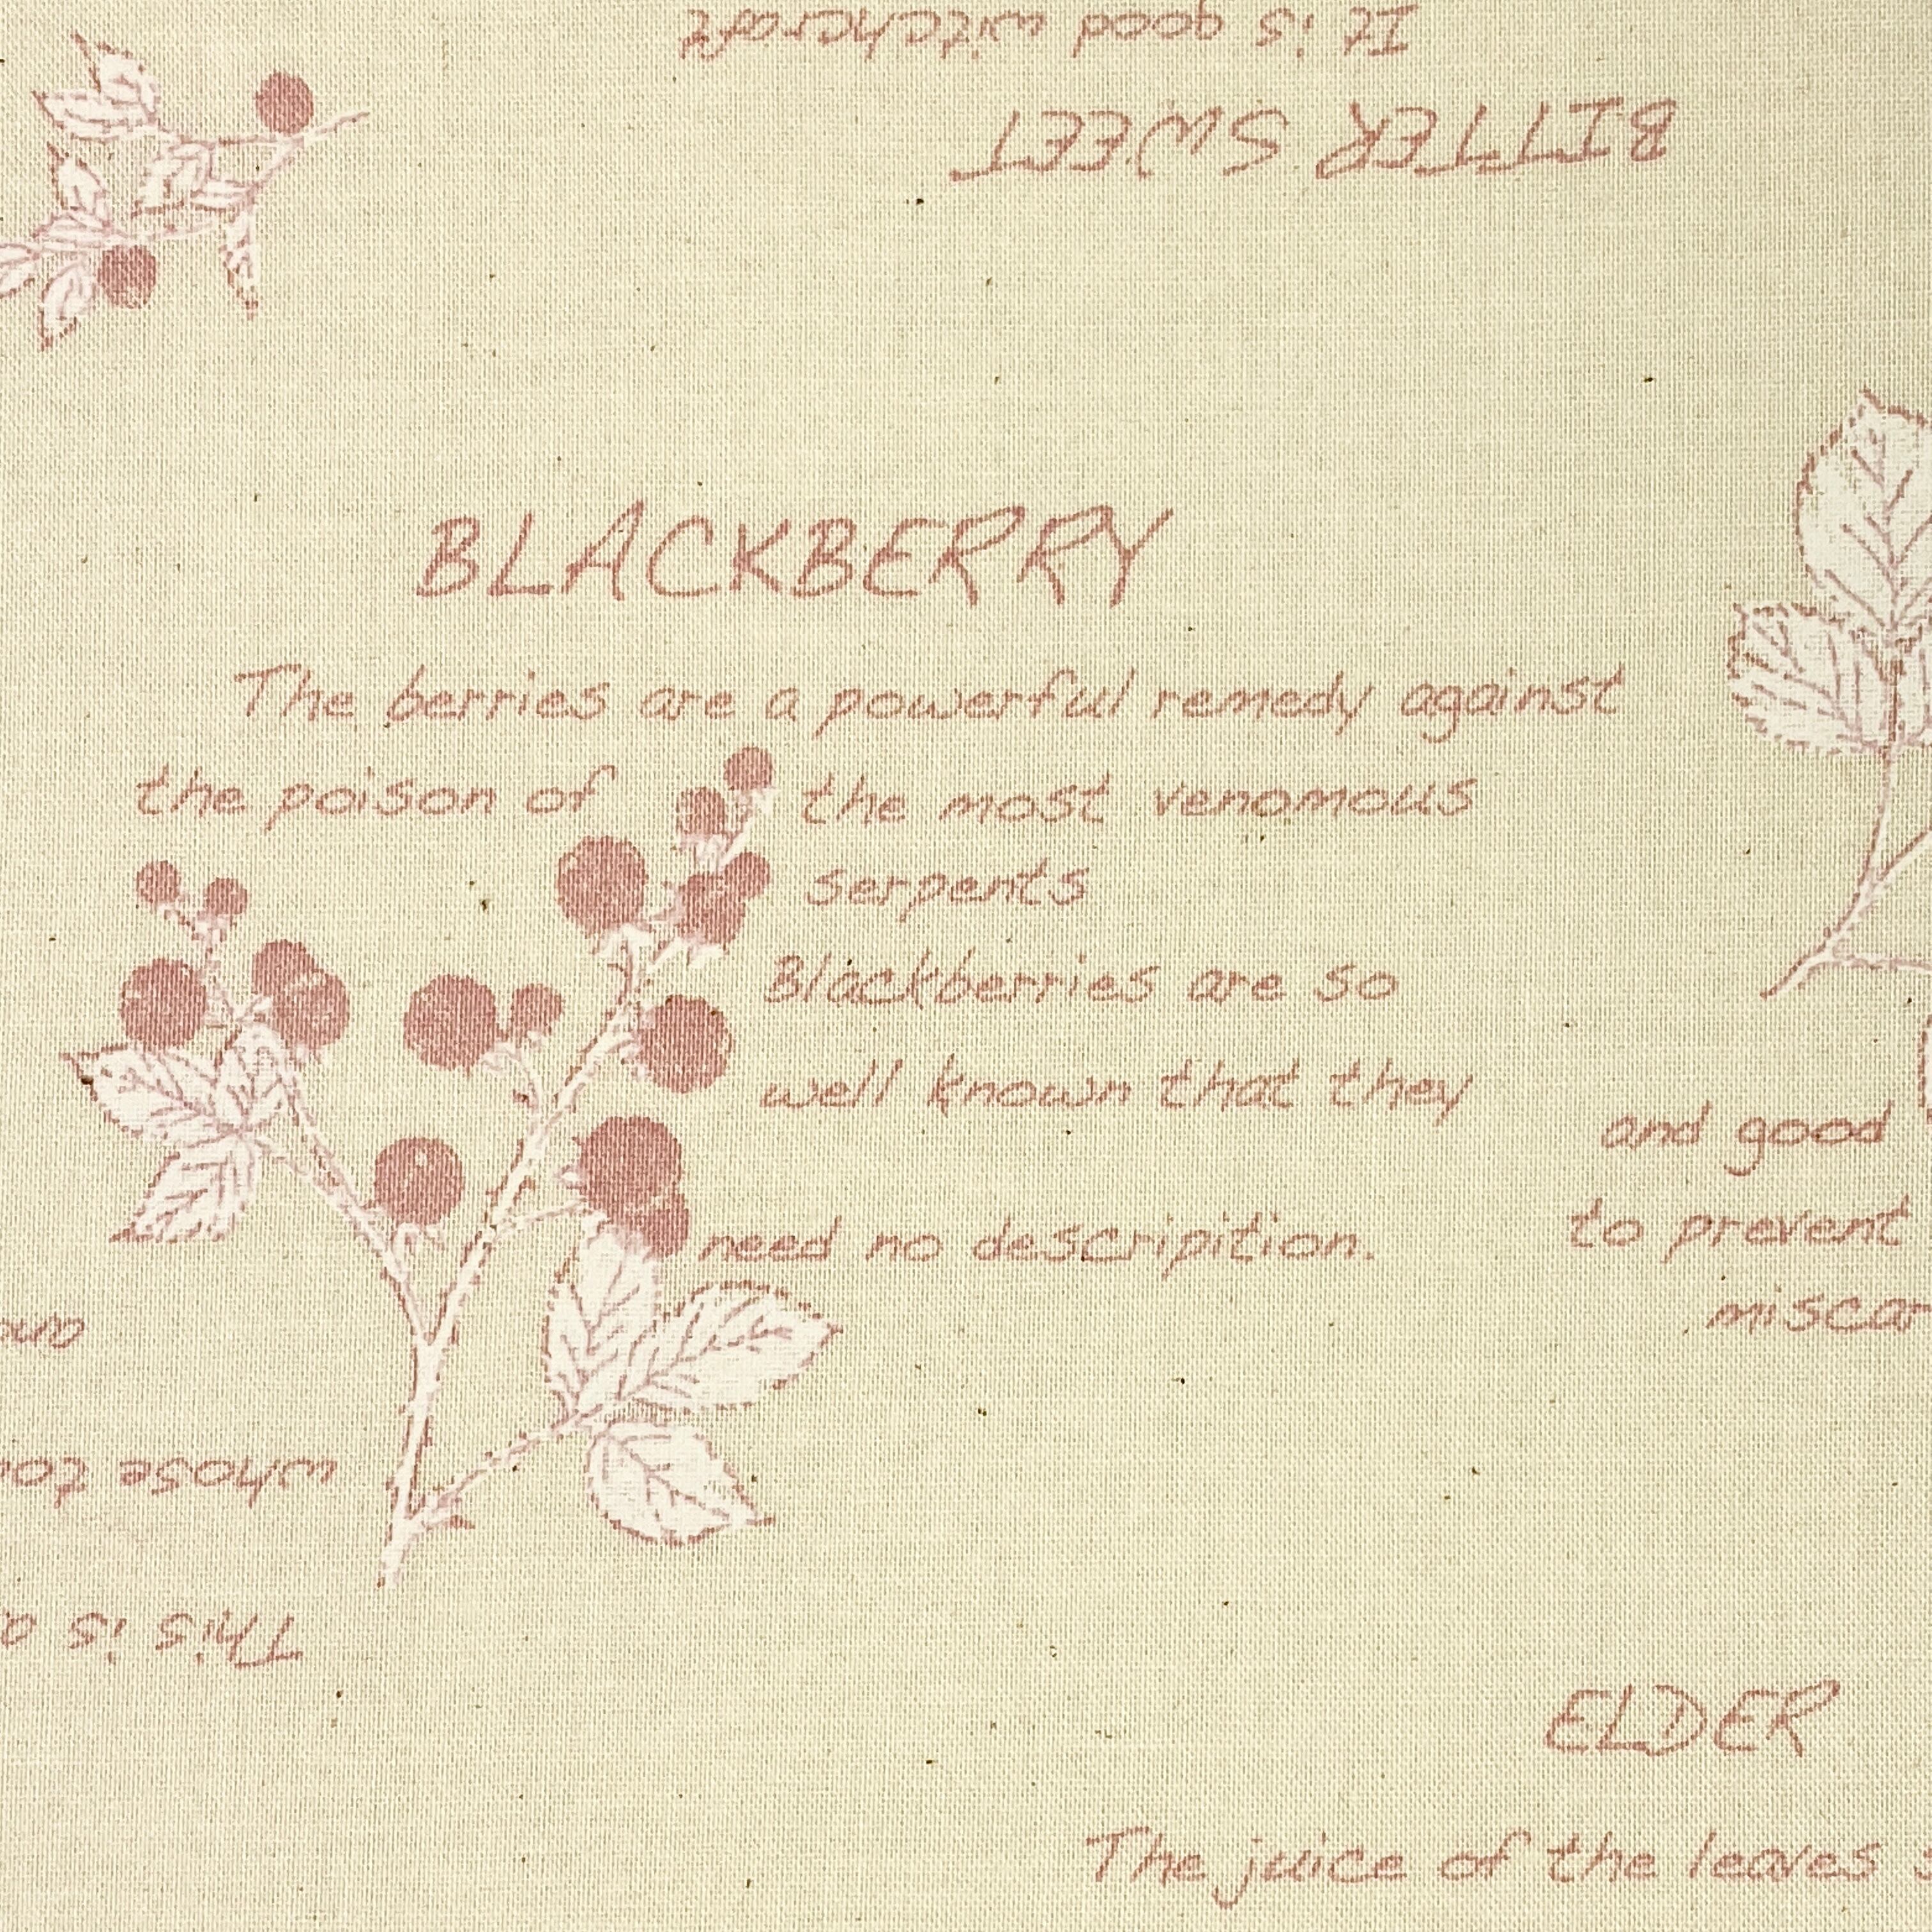 It is good witchcraft
BITTER SWEET
BLACKBERRY
The berries are a powerful remedy against
the poison of the most venomous
serpents
Blackberries are so
well known that they
need no descripition.
and good
to prevent
miscar
whose
This is a
ELDER
The juice of the leaves